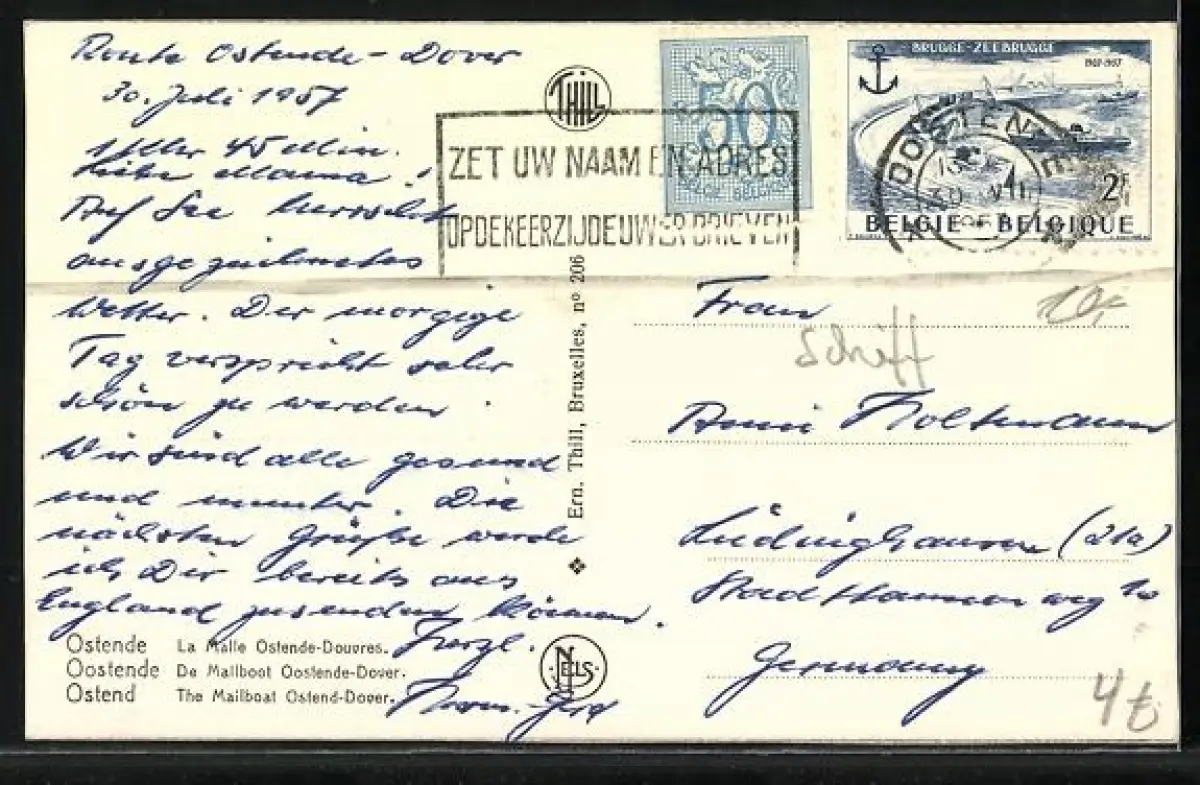 Route Ostende - Dover
30. Juli 1957
Uhr 45 Min.
Liebe Mama!
Auf See herrscht
ausgezeichnetes
Wetter. Der morgige
Tag verspricht sehr
schön zu werden.
Wir sind alle gesund
und munter. Die
nächsten Grüße werde
ich Dir bereits aus
England zusenden können.
Herzl.
Ostende La Malle Ostende-Douvres.
Oostende De Mailboot Oostende-Dover.
Ostend The Mailboat Ostend-Dover.
THILL
Ern. Thill, Bruxelles, nº 206
NELS
ZET UW NAAM EN ADRES
OP DE KEERZIJDE UWER BRIEVEN
50c
BELGIE BELGIQUE
BRUGGE-ZEEBRUGGE
1907-1957
OOSTENDE
30 VII
1957
2F
BELGIE-BELGIQUE
Frau
Schiff
10,-
Anni Holtmann
Lüdinghausen (21a)
Stadthannenweg 10
Germany